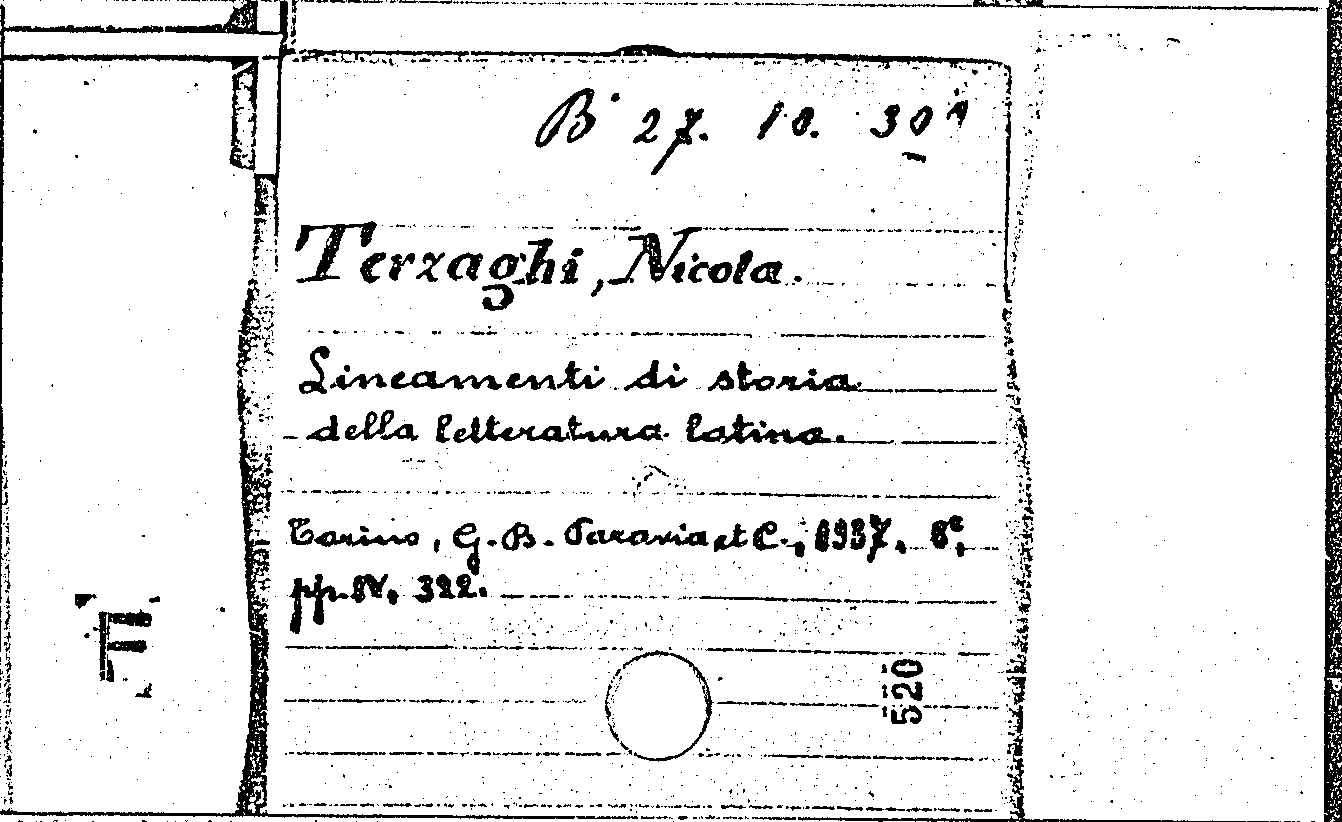 B 27. 10. 30
Terzaghi, Nicola.
Lineamenti di storia
della letteratura latina.
Torino, G. B. Paravia et C., 1937. 8°,
pp. IV, 322.
520